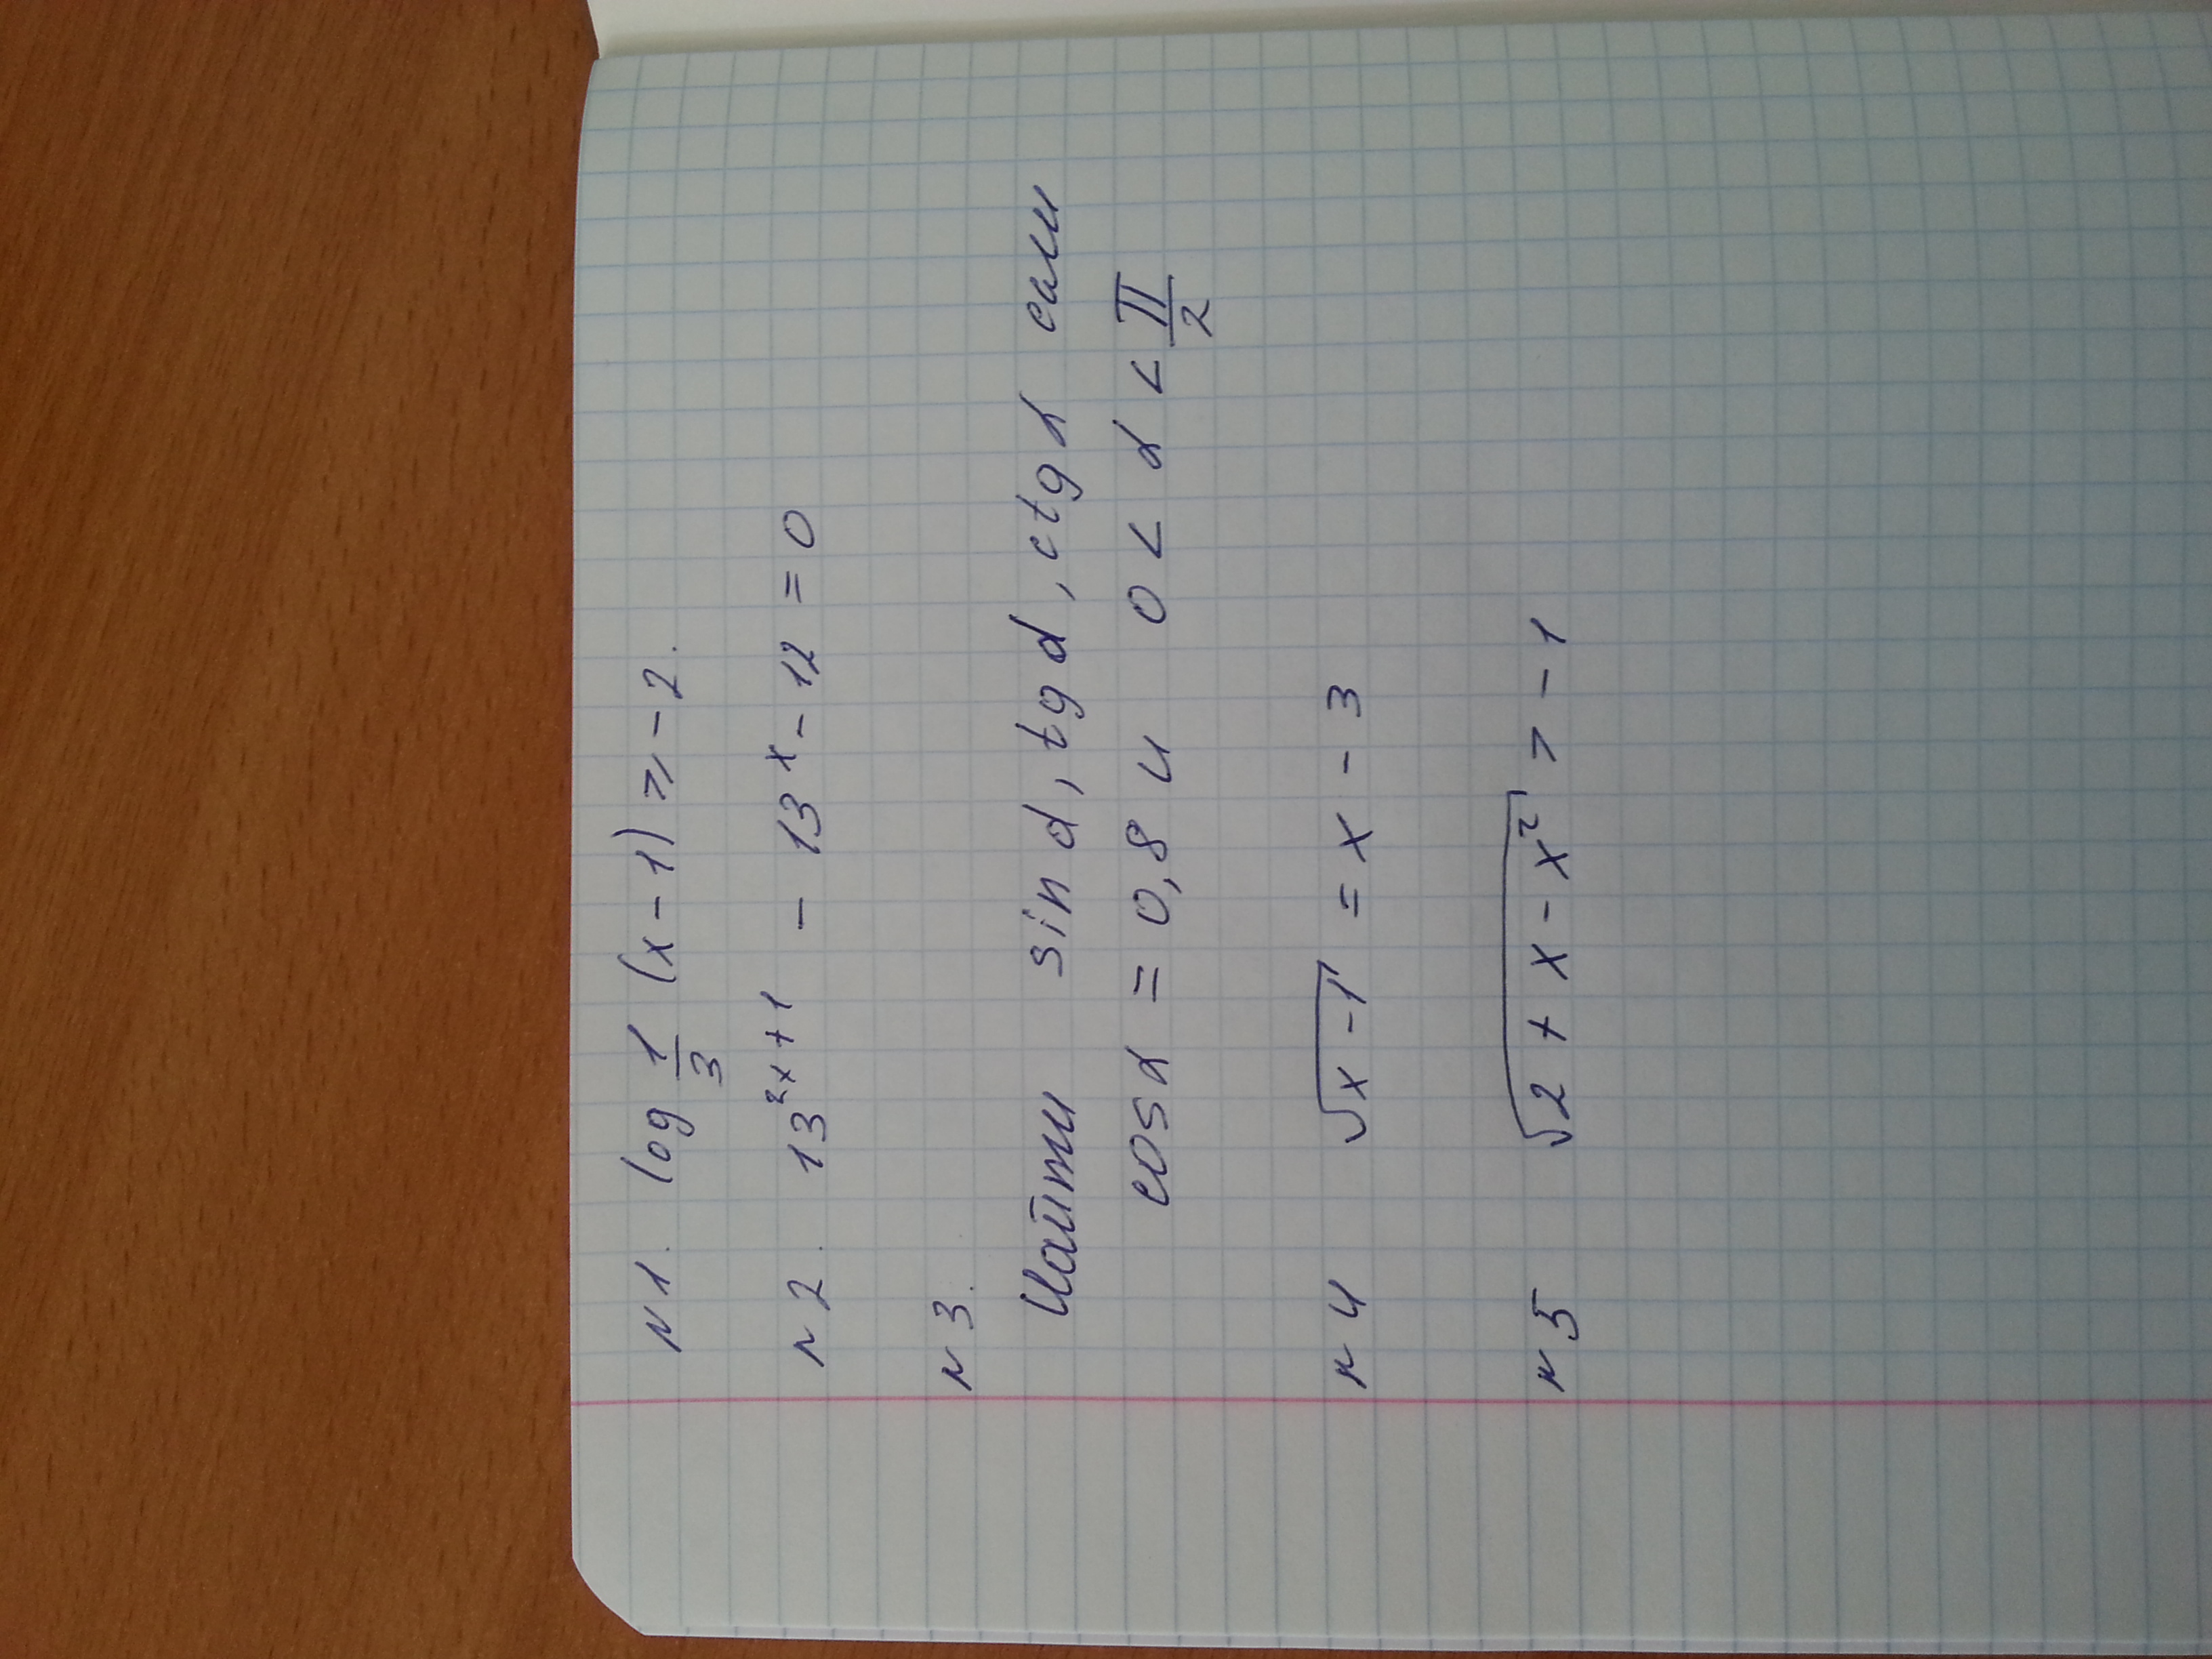 N1. log 1/3 (x-1) ⩾ -2.
N2. 13^(2x+1) - 13^x - 12 = 0
N3.
Найти sin α, tg α, ctg α если
cos α = 0,8 и 0 < α < π/2
N4 √(x-1) = x - 3
N5 √(2 + x - x²) > -1